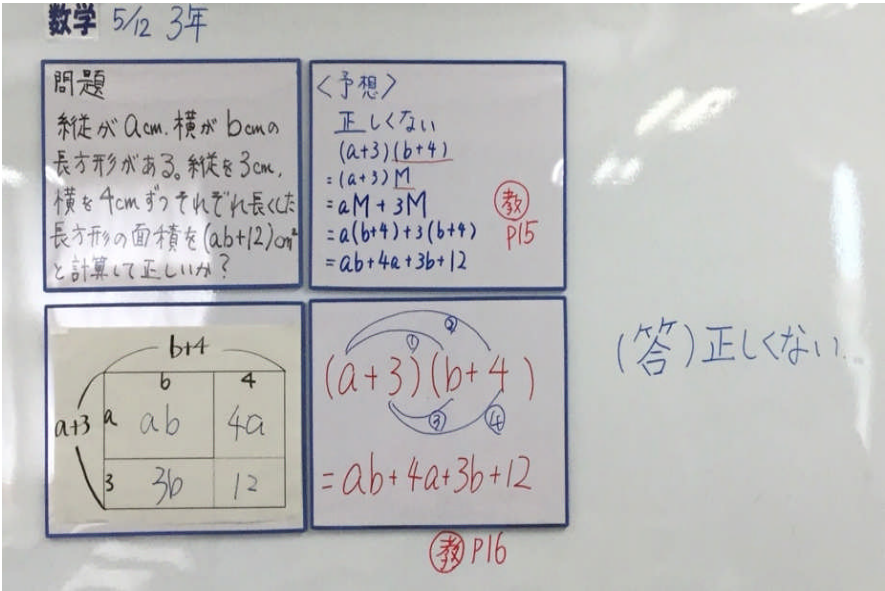 数学 5/12 3年
問題
縦がacm.横がbcmの
長方形がある。縦を3cm,
横を4cmずつそれぞれ長くした
長方形の面積を(ab+12)cm²
と計算して正しいか?
<予想>
正しくない
(a+3)(b+4)
=(a+3)M
=aM+3M
=a(b+4)+3(b+4)
=ab+4a+3b+12
教
P15
b+4
b 4
a+3 a ab 4a
3 3b 12
② 
①
(a+3)(b+4)
③ ④
=ab+4a+3b+12
教 P16
(答)正しくない.